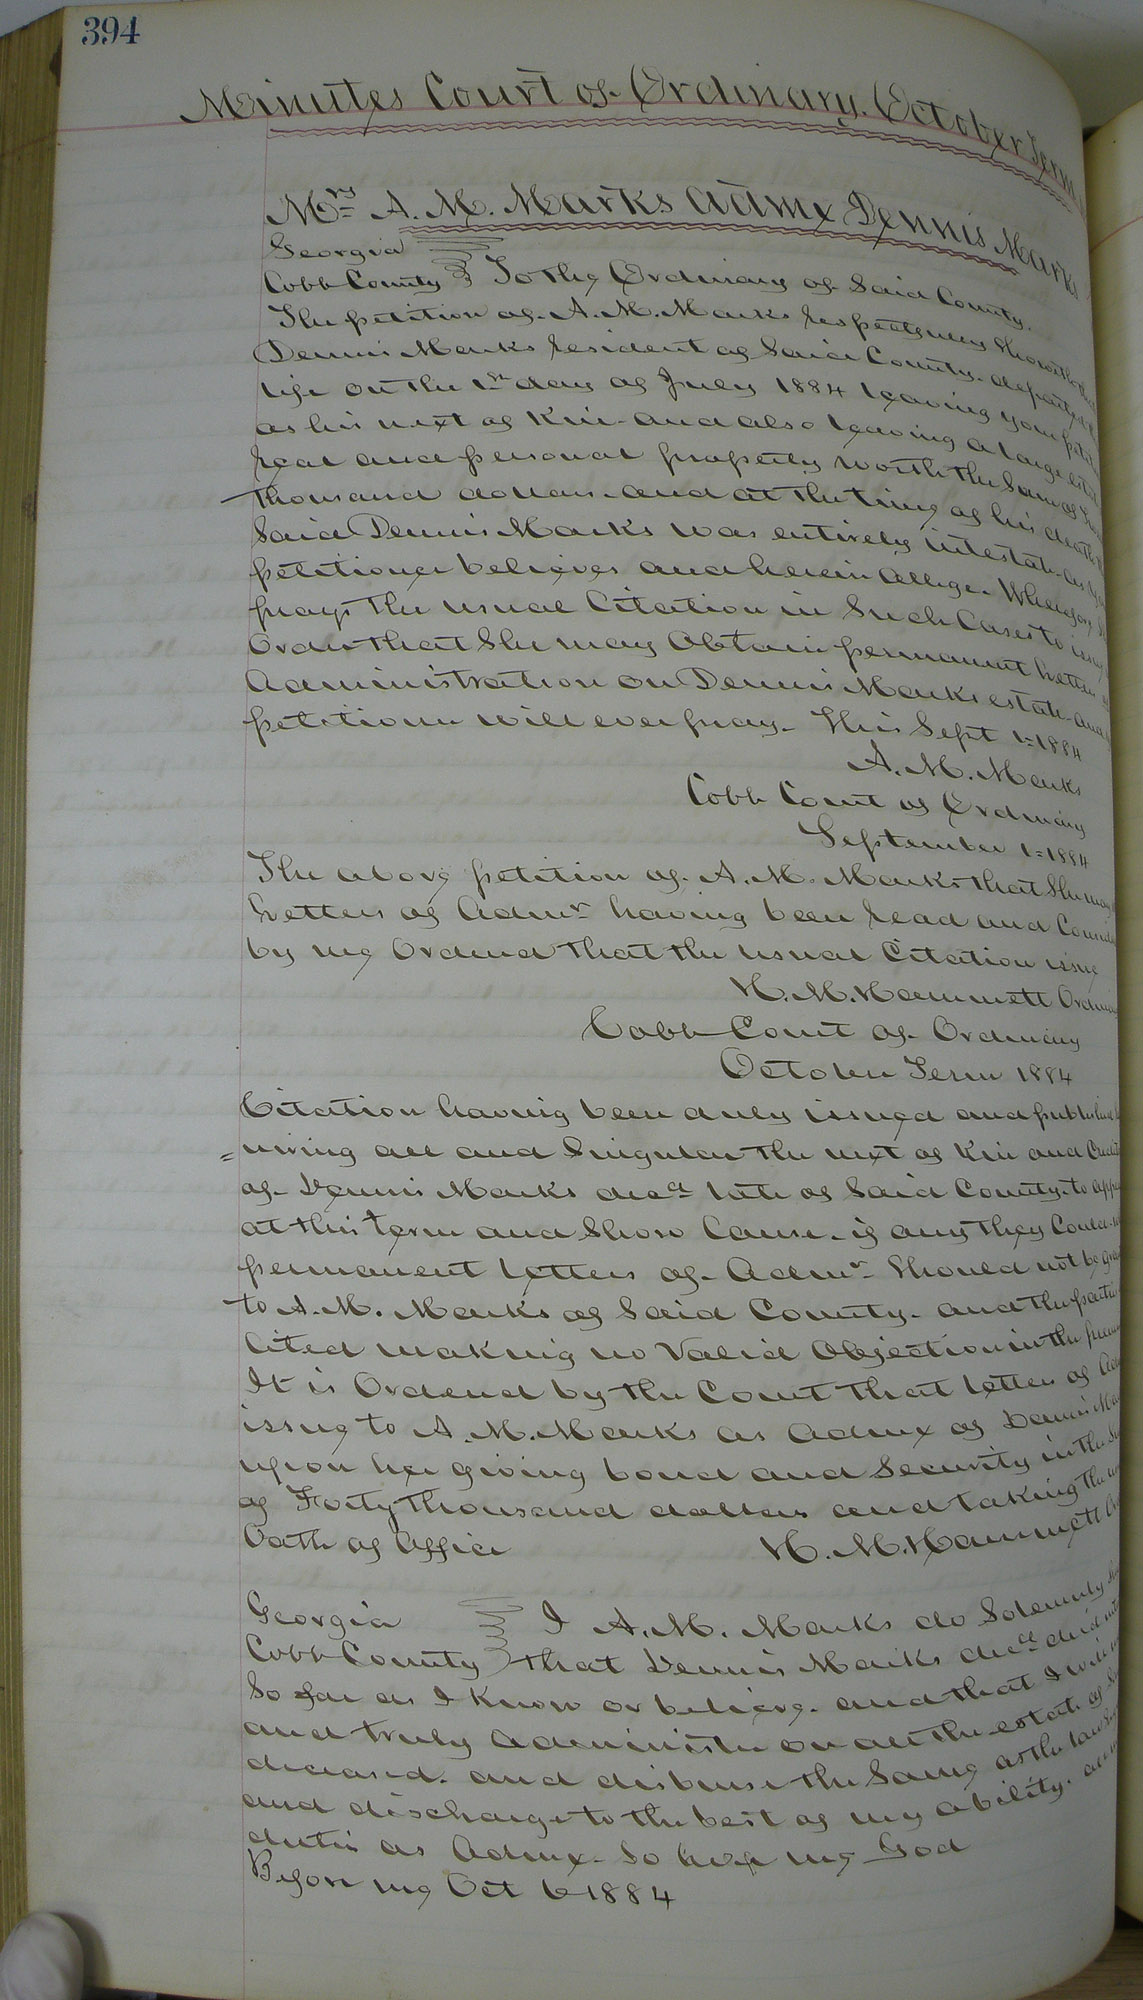 394
Minutes Court of Ordinary. October Term
Mrs A. M. Marks Admx Dennis Marks
Georgia
Cobb County To the Ordinary of Said County.
The petition of A. M. Marks respectfully showeth that
Dennis Marks resident of Said County. departed this
life on the 1st day of July 1884 leaving your
as his next of Kin and also leaving a large estate
real and personal property worth the Sum of
thousand dollars. and at the time of his death
Said Dennis Marks was entirely intestate as
petitioner believes and herein alleges. Wherefore
prays the usual Citation in Such Cases to issue
Order that She may Obtain permanent Letters
Administration on Dennis Marks estate. and
petitioner will ever pray. This Sept 1=1884
A. M. Marks
Cobb Court of Ordinary
September 1=1884
The above petition of A. M. Marks that She may
Letters of Admr having been read and
by me Ordered that the usual Citation issue
H. M. Hammett Ordinary
Cobb Court of Ordinary
October Term 1884
Citation having been duly issued and published
=uiring all and Singular the next of Kin and
of Dennis Marks decd late of Said County. to
at this term and Show Cause. if any they Could.
permanent Letters of Admr Should not be
to A. M. Marks of Said County. and the
Cited making no Valid Objection in the
It is Ordered by the Court that Letters of
issue to A. M. Marks as Admx of Dennis
upon her giving bond and Security in the
of Forty thousand dollars and taking the
Oath of Office H. M. Hammett
Georgia I A. M. Marks do Solemnly
Cobb County that Dennis Marks decd died
So far as I know or believe. and that I will
and truly Administer on all the estate of
deceased. and disburse the Same as the law
and discharge to the best of my ability.
duties as Admx. So help me God
Before me Oct 6 1884